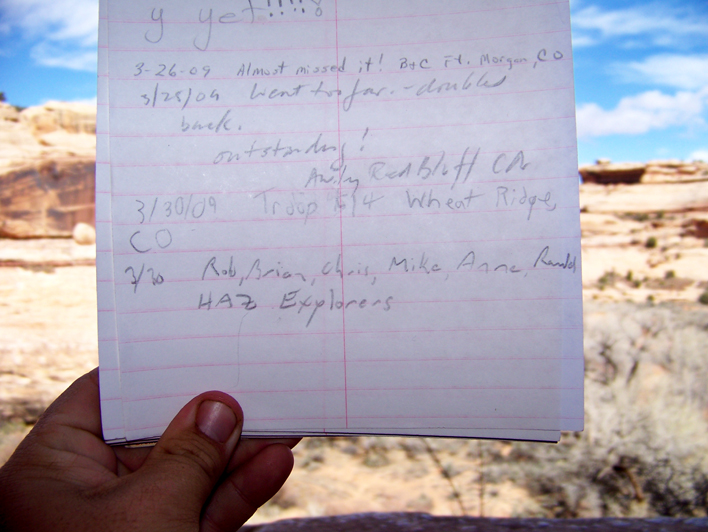 y yet!!!!!
3-26-09 Almost missed it! B+C Ft. Morgan, CO
3/28/09 Went too far. - doubled
back.
outstanding!
Red Bluff CA
3/30/09 Troop Wheat Ridge,
CO
3/30 Rob, Brian, Chris, Mike, Anne,
HAZ Explorers